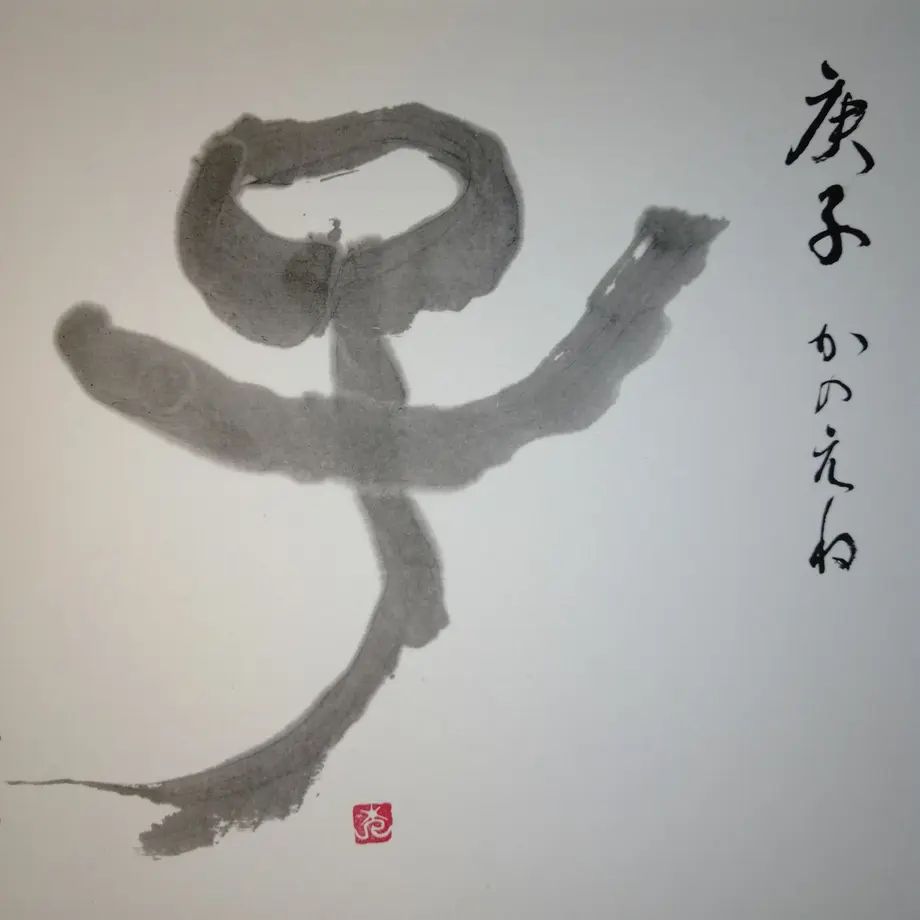 庚子 かのえね
子